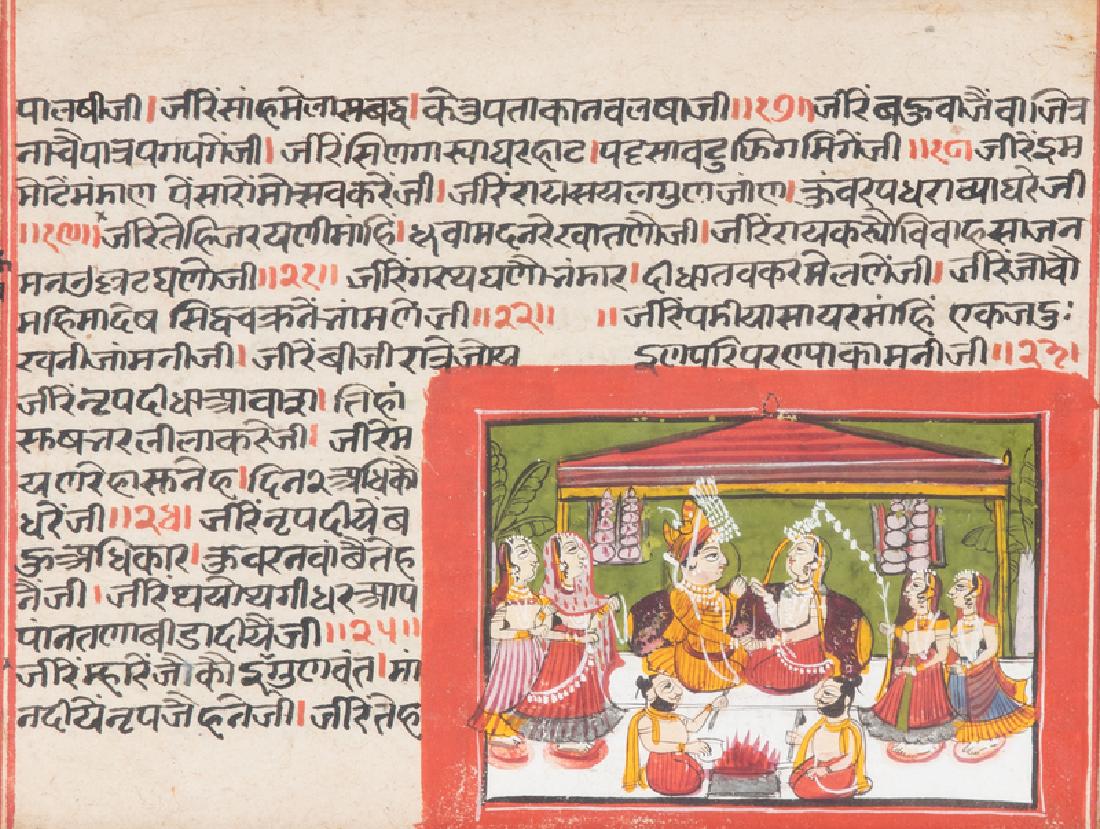 पालषीजी। जीरेंसांहमेलासबद्द। केतुपताकानवलषाजी॥१७॥ जीरिंबहुवाजैंवाजित्र
नाचैपात्रपगपगेंजी। जीरिंसिणगास्याघरहाट। पट्टसावटु जी॥१८॥ जीरेंइम
मोटेंमंडाण पेंसारोंमोत्सवकरेंजी। जीरिंरायसयलगुणजांण। कुंवरपधराव्याघरेंजी
॥१९॥ जीरितेहिजरयणीमांहिं। धूवामदनरेखातणोजी। जीरिंरायकस्योविवाहसाजन
घणोजी॥२१॥ जीरिंगरथघणौनंमार। दीधातवकरमेलणेंजी। जीरिंजौवौ
महिमादेष सिद्धचक्रनेंनांमलेंजी॥२२॥ ॥जीरिंपडीयासायरमांहिं एकजदुः
खनीजांमनीजी। जीरेंबीजीरात्रेंजोय इणपरिपरण्पाकामनीजी॥२३॥
जीरिंनृपदीधाआवास। तिहां
सुषभरलीलाकरेजी। जीरेम
यणरेहासुनेह। दिन२अधिको
धरेंजी॥२४॥ जीरिंनृपदीयेंब
हुअधिकार। कुंवरनवांबैतेह
नैजी। जीरिंथयोथगीधरआप
पांनतणाबीडादीयेंजी॥२५॥
जीरिंम्हारिंजौकोइंगुणवंत। मां
नदीयेंनृपजैहनेजी। जीरितेह